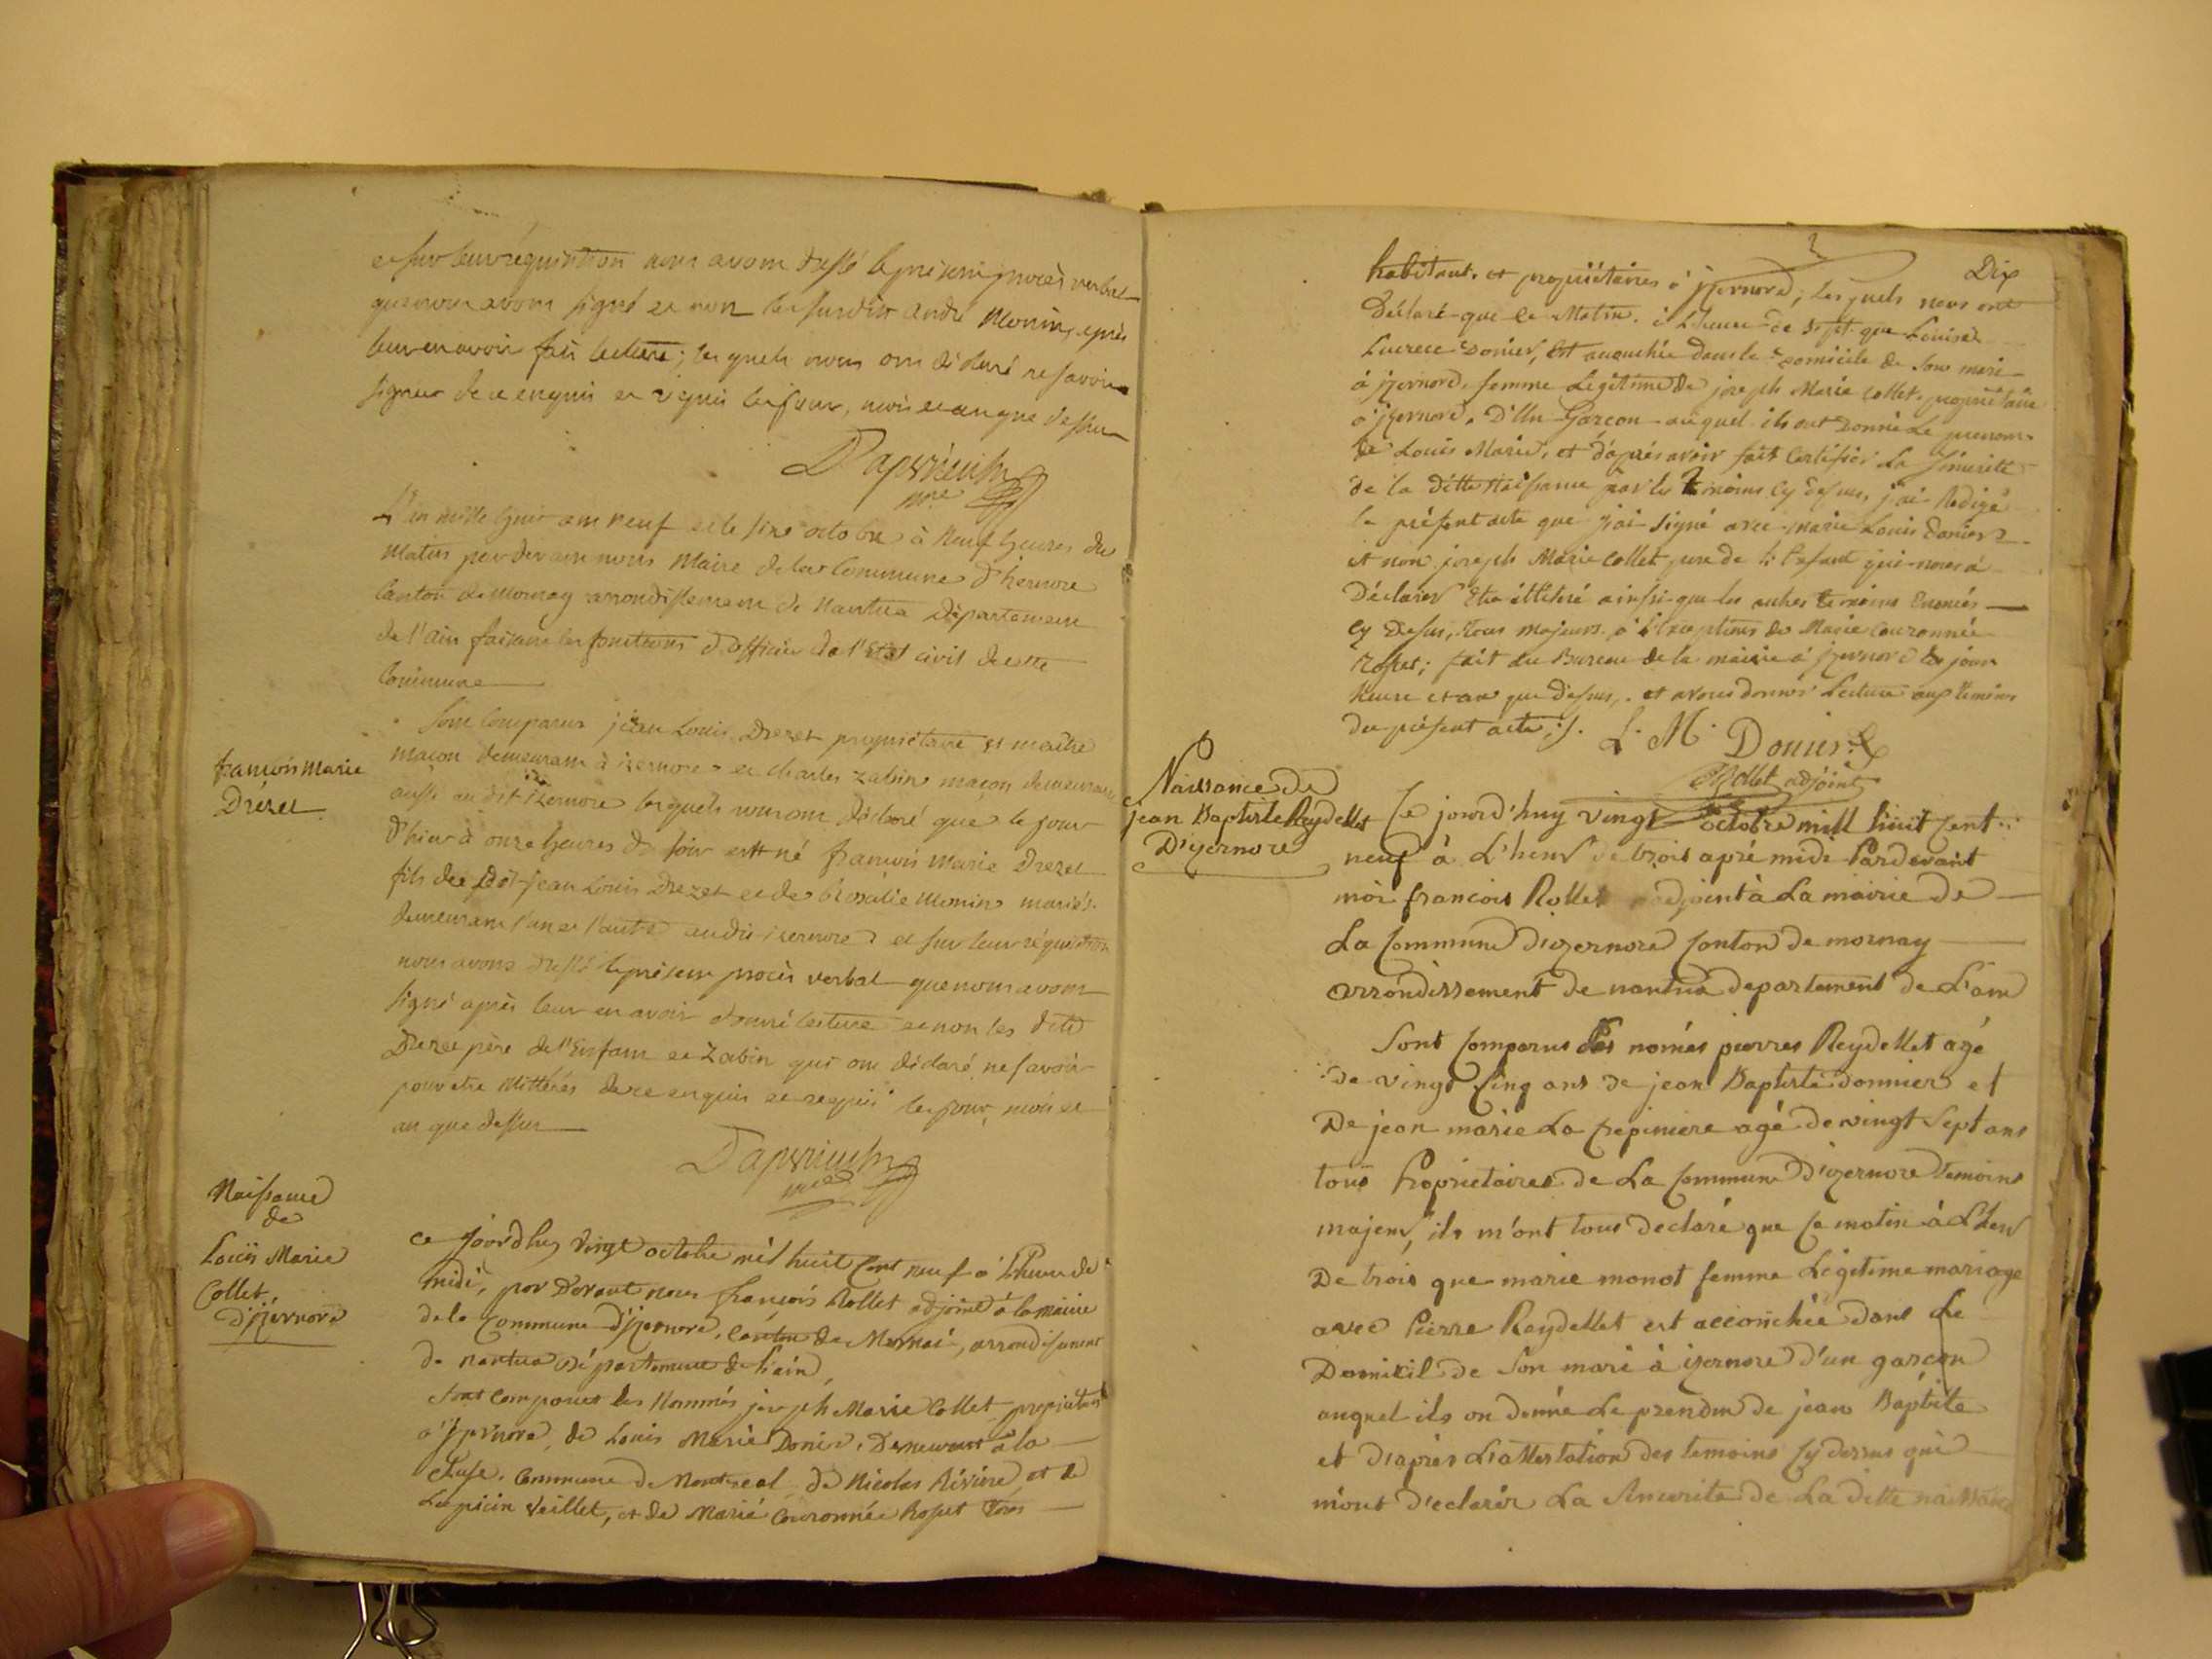 et sur leur réquisition nous avons dressé le présent procès verbal
que nous avons signé et non les susdits andré Monin, après
leur en avoir fait lecture; les quels nous ont déclaré ne savoir
signer de ce enquis et réquis les jour, mois et an que dessus
maire
L'an mille huit cent neuf et le six octobre à neuf heures du
matin par devant nous Maire de la Commune d'izernore
Canton de Mornay arrondissement de Nantua Département
de l'ain faisant les fonctions d'officier de l'Etat civil de cette
Commune
françois Marie
Drézet
Sont Comparus jean Louis Drezet propriétaire et maître
maçon demeurant à izernore et charles zabin maçon demeurant
aussi au dit izernore lesquels nous ont déclaré que le jour
d'hier à onze heures du soir est né françois Marie Drezet
fils de dit jean Louis Drezet et de Rosalie Monin mariés
demeurant l'un et l'autre audit izernore et sur leur réquisition
nous avons dressé le présent procès verbal que nous avons
signé après leur en avoir donné lecture et non les dits
Drezet père de l'Enfant et Zabin qui ont déclaré ne savoir
pour etre illitérés de ce enquis et requis les jour, mois et
an que dessus
maire
Naissance
de
Louis Marie
Collet,
d'izernore
ce jourdhuy vingt octobre mil huit Cent neuf à l'heure de
midi, par Devant nous françois Rollet adjoint à la mairie
de la Commune d'izernore, Canton de Mornai, arrondisement
de nantua Département de l'ain,
sont comparus les Nommés joseph Marie Collet propriétaire
à izernore, de Louis Marie Donier, Demeurant à la
cluse, Commune de Montreal, de Nicolas Rivière, et de
Veillet, et de Marie Couronnée Roset tous
Dix
habitant. et propriétaires à izernore, les quels nous ont
Déclaré que ce Matin. à L'heure de sept. que Louise
Lucrece Donier, Est accouchée dans le Domicile de son mari
à izernore, femme Légitime de joseph Marie Collet, propriétaire
à izernore, D'Un Garcon auquel ils ont Donné Le prenom
de Louis Marie, et d'après avoir fait Certifier La sincerité
de la ditte Naissance par les Temoins Cy dessus, j'ai Redigé
le présent acte que j'ai signé avec marie Louis Donier
et non joseph Marie Collet pere de l'Enfant qui nous à
Déclarer Etre illitéré ainsi que les autres temoins Enoncés
Cy Dessus, Tous Majeurs à l'Exceptions de Marie Couronnée
Roset; fait au Bureau de la mairie à izernore les jour
heure et an que dessus, et avons donner Lecture aux temoins
du présent acte ;/.
L. M. Donier
Rollet adjoint
Naissance de
jean Baptiste Reydellet
D'izernore
Ce jourd'huy vingt octobre mill huit Cent
neuf à L'heur de trois apré midi Pardevant
moi francois Rollet adjoint à La mairie de
La Commune d'izernore Canton de mornay
arrondissement de nantua departement de L'ain
Sont Comparus Les només pierres Reydellet agé
de vingt Cinq ans de jean Baptiste donnier et
De jean marie La agé de vingt Sept ans
tous Propriétaires de La Commune D'izernore temoins
majeur, ils m'ont tous declaré que Ce matin à L'heur
De trois que marie monot femme Légitime mariage
avec Pierre Reydellet est accouchée dans Le
Domicil de Son mari à izernore d'un garçon
auquel ils on donné Le prenom de jean Baptiste
et d'après L'attestation des temoins Cy dessus qui
m'ont déclarér La Sincerite de La ditte naissance